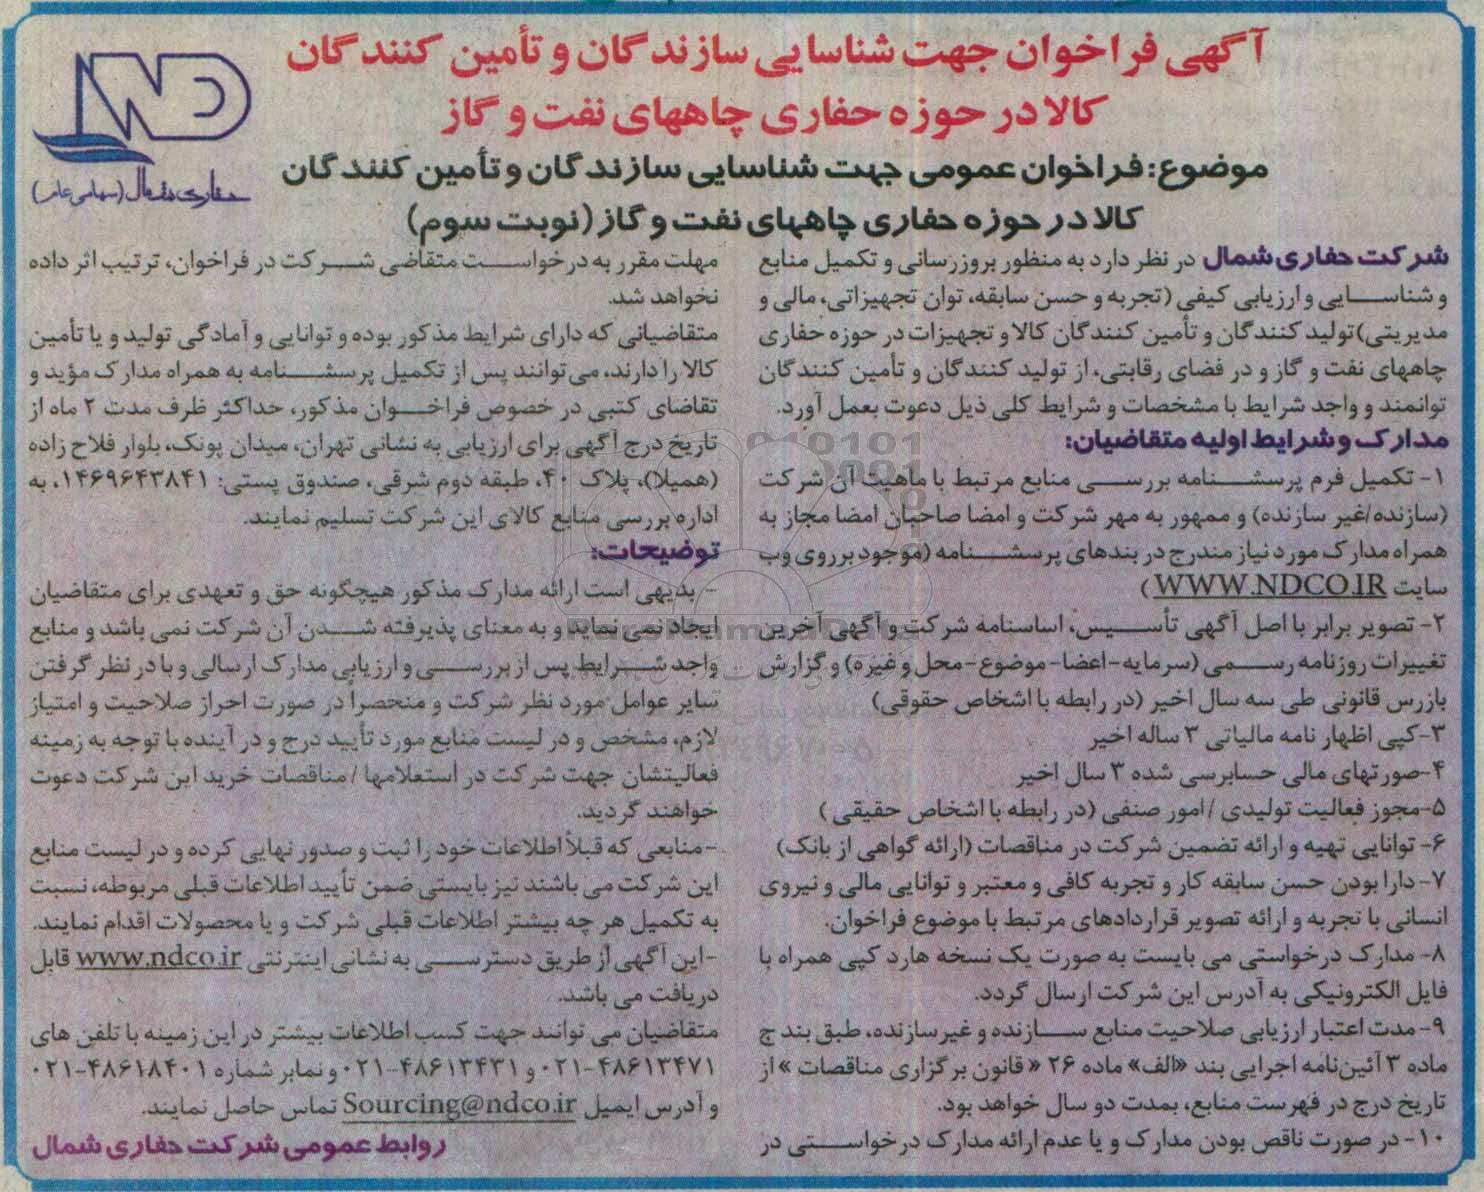 آگهی فراخوان جهت شناسایی سازندگان و تأمین کنندگان
کالا در حوزه حفاری چاههای نفت و گاز
موضوع: فراخوان عمومی جهت شناسایی سازندگان و تأمین کنندگان
کالا در حوزه حفاری چاههای نفت و گاز (نوبت سوم)
حفاری شمال (سهامی عام)
شرکت حفاری شمال در نظر دارد به منظور بروزرسانی و تکمیل منابع
و شناسایی و ارزیابی کیفی (تجربه و حسن سابقه، توان تجهیزاتی، مالی و
مدیریتی) تولید کنندگان و تأمین کنندگان کالا و تجهیزات در حوزه حفاری
چاههای نفت و گاز و در فضای رقابتی، از تولید کنندگان و تأمین کنندگان
توانمند و واجد شرایط با مشخصات و شرایط کلی ذیل دعوت بعمل آورد.
مدارک و شرایط اولیه متقاضیان:
۱- تکمیل فرم پرسشنامه بررسی منابع مرتبط با ماهیت آن شرکت
(سازنده/غیر سازنده) و ممهور به مهر شرکت و امضا صاحبان امضا مجاز به
همراه مدارک مورد نیاز مندرج در بندهای پرسشنامه (موجود بر روی وب
سایت WWW.NDCO.IR)
۲- تصویر برابر با اصل آگهی تأسیس، اساسنامه شرکت و آگهی آخرین
تغییرات روزنامه رسمی (سرمایه-اعضا-موضوع-محل و غیره) و گزارش
بازرس قانونی طی سه سال اخیر (در رابطه با اشخاص حقوقی)
۳-کپی اظهار نامه مالیاتی ۳ ساله اخیر
۴-صورتهای مالی حسابرسی شده ۳ سال اخیر
۵-مجوز فعالیت تولیدی / امور صنفی (در رابطه با اشخاص حقیقی)
۶- توانایی تهیه و ارائه تضمین شرکت در مناقصات (ارائه گواهی از بانک)
۷-دارا بودن حسن سابقه کار و تجربه کافی و معتبر و توانایی مالی و نیروی
انسانی با تجربه و ارائه تصویر قراردادهای مرتبط با موضوع فراخوان.
۸- مدارک درخواستی می بایست به صورت یک نسخه هارد کپی همراه با
فایل الکترونیکی به آدرس این شرکت ارسال گردد.
۹- مدت اعتبار ارزیابی صلاحیت منابع سازنده و غیرسازنده، طبق بند ج
ماده ۳ آئین‌نامه اجرایی بند «الف» ماده ۲۶ «قانون برگزاری مناقصات» از
تاریخ درج در فهرست منابع، بمدت دو سال خواهد بود.
۱۰- در صورت ناقص بودن مدارک و یا عدم ارائه مدارک درخواستی در
مهلت مقرر به درخواست متقاضی شرکت در فراخوان، ترتیب اثر داده
نخواهد شد.
متقاضیانی که دارای شرایط مذکور بوده و توانایی و آمادگی تولید و یا تأمین
کالا را دارند، می‌توانند پس از تکمیل پرسشنامه به همراه مدارک مؤید و
تقاضای کتبی در خصوص فراخوان مذکور، حداکثر ظرف مدت ۲ ماه از
تاریخ درج آگهی برای ارزیابی به نشانی تهران، میدان پونک، بلوار فلاح زاده
(همیلا)، پلاک ۴۰، طبقه دوم شرقی، صندوق پستی: ۱۴۶۹۶۴۳۸۴۱، به
اداره بررسی منابع کالای این شرکت تسلیم نمایند.
توضیحات:
- بدیهی است ارائه مدارک مذکور هیچگونه حق و تعهدی برای متقاضیان
ایجاد نمی نماید و به معنای پذیرفته شدن آن شرکت نمی باشد و منابع
واجد شرایط پس از بررسی و ارزیابی مدارک ارسالی و با در نظر گرفتن
سایر عوامل مورد نظر شرکت و منحصراً در صورت احراز صلاحیت و امتیاز
لازم، مشخص و در لیست منابع مورد تأیید درج و در آینده با توجه به زمینه
فعالیتشان جهت شرکت در استعلامها / مناقصات خرید این شرکت دعوت
خواهند گردید.
-منابعی که قبلاً اطلاعات خود را ثبت و صدور نهایی کرده و در لیست منابع
این شرکت می باشند نیز بایستی ضمن تأیید اطلاعات قبلی مربوطه، نسبت
به تکمیل هر چه بیشتر اطلاعات قبلی شرکت و یا محصولات اقدام نمایند.
-این آگهی از طریق دسترسی به نشانی اینترنتی www.ndco.ir قابل
دریافت می باشد.
متقاضیان می توانند جهت کسب اطلاعات بیشتر در این زمینه با تلفن های
۰۲۱-۴۸۶۱۳۴۷۱ و ۰۲۱-۴۸۶۱۳۴۳۱ و نمابر شماره ۰۲۱-۴۸۶۱۸۴۰۱
و آدرس ایمیل Sourcing@ndco.ir تماس حاصل نمایند.
روابط عمومی شرکت حفاری شمال